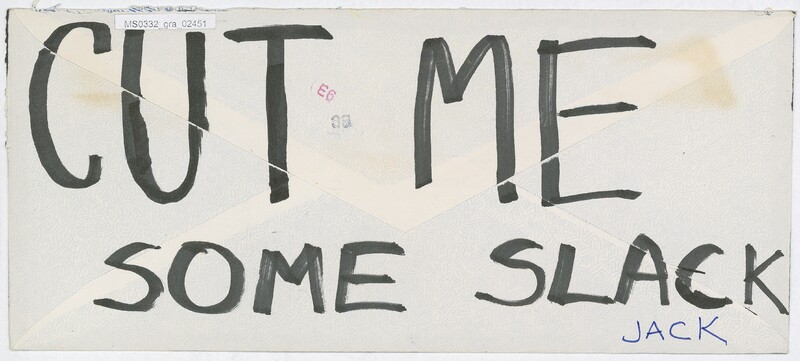 MS0332_gra_02451
CUT ME
E6
SOME SLACK
JACK